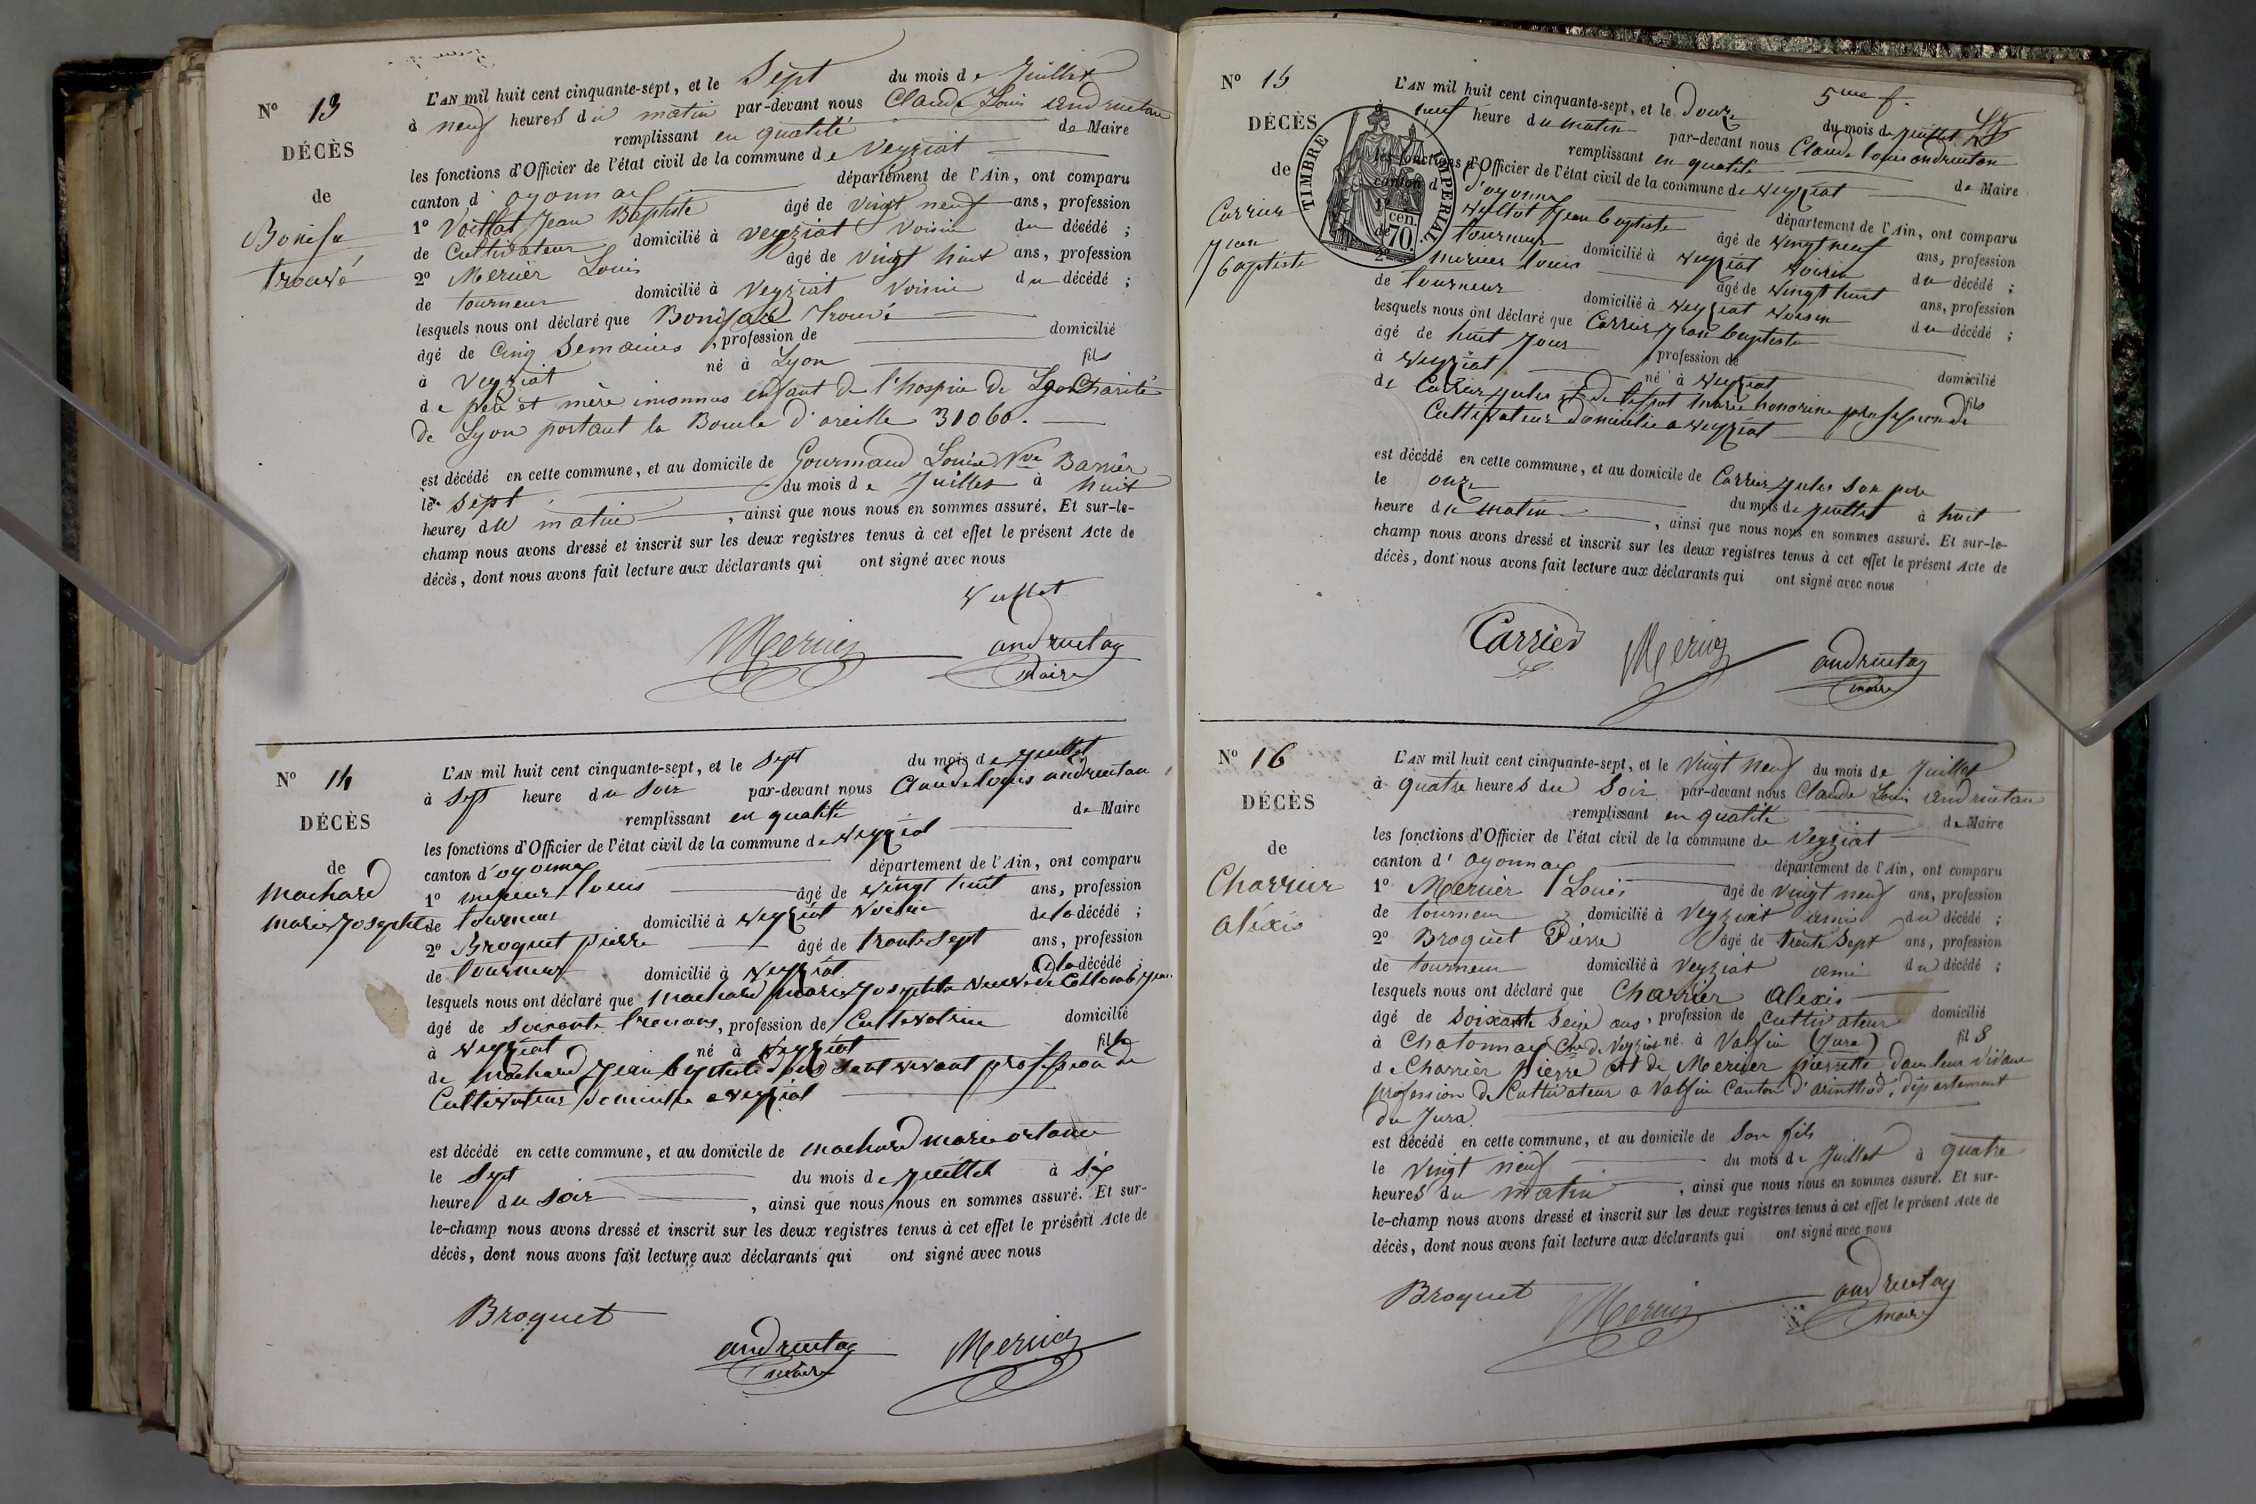 N° 13
DÉCÈS
de
Bonifa
trouvé
L'AN mil huit cent cinquante-sept, et le Sept du mois de Juillet
à neuf heures du matin par-devant nous Claude Louis andruetan
remplissant en qualité de Maire
les fonctions d'Officier de l'état civil de la commune de Veyziat
canton d'oyonnax département de l'Ain, ont comparu
1° Voillat Jean Baptiste âgé de vingt neuf ans, profession
de Cultivateur domicilié à veyziat voisin du décédé ;
2° Mercier Louis âgé de vingt huit ans, profession
de tourneur domicilié à Veyziat voisin du décédé ;
lesquels nous ont déclaré que Boniface trouvé
âgé de cinq Semaines, profession de domicilié
à Veyziat né à Lyon fils
de père et mère inconnus enfant de l'hospice de Charité
de Lyon portant la Boucle d'oreille 31060.
est décédé en cette commune, et au domicile de Gourmand Louise Vve Barrier
le Sept du mois de Juillet à huit
heures du matin, ainsi que nous nous en sommes assuré. Et sur-le-
champ nous avons dressé et inscrit sur les deux registres tenus à cet effet le présent Acte de
décès, dont nous avons fait lecture aux déclarants qui ont signé avec nous
Mercier andruetan
Maire
N° 14
DÉCÈS
de
Machard
marie Josephte
L'AN mil huit cent cinquante-sept, et le Sept du mois de juillet
à Sept heure du Soir par-devant nous Claude louis andruetan
remplissant en qualité de Maire
les fonctions d'Officier de l'état civil de la commune de veyziat
canton d'oyonnax département de l'Ain, ont comparu
1° mercier louis âgé de vingt huit ans, profession
de tourneur domicilié à veyziat voisin de la décédé ;
2° Broquet pierre âgé de trente Sept ans, profession
de tourneur domicilié à veyziat de la décédé ;
lesquels nous ont déclaré que Machard marie Josephte veuve de Collomb jean
âgé de Soixante trois ans, profession de Cultivatrice domicilié
à veyziat né à veyziat fille
de Machard Jean baptiste de son vivant profession de
Cultivateur domicilié a veyziat
est décédé en cette commune, et au domicile de machard marie
le Sept du mois de juillet à Six
heure du Soir, ainsi que nous nous en sommes assuré. Et sur-
le-champ nous avons dressé et inscrit sur les deux registres tenus à cet effet le présent Acte de
décès, dont nous avons fait lecture aux déclarants qui ont signé avec nous
Broquet
andruetan Mercier
maire
5me f.
N° 15
DÉCÈS
de
Carrier
jean
baptiste
TIMBRE IMPERIAL
cen
70
L'AN mil huit cent cinquante-sept, et le douze du mois de juillet
à neuf heure du matin par-devant nous Claude louis andruetan
remplissant en qualité de Maire
les fonctions d'Officier de l'état civil de la commune de veyziat
canton d'oyonnax département de l'Ain, ont comparu
jean baptiste âgé de vingt neuf ans, profession
tourneur domicilié à veyziat voisin du décédé ;
2° mercier louis âgé de vingt huit ans, profession
de tourneur domicilié à veyziat voisin du décédé ;
lesquels nous ont déclaré que Carrier jean baptiste
âgé de huit jour, profession de domicilié
à veyziat né à veyziat fils
de Carrier jules et de marie honorine profession de
Cultivateur domicilié a veyziat
est décédé en cette commune, et au domicile de Carrier jules Son pere
le onze du mois de juillet à huit
heure du matin, ainsi que nous nous en sommes assuré. Et sur-le-
champ nous avons dressé et inscrit sur les deux registres tenus à cet effet le présent Acte de
décès, dont nous avons fait lecture aux déclarants qui ont signé avec nous
Carrier Mercier andruetan
maire
N° 16
DÉCÈS
de
Charrier
Aléxis
L'AN mil huit cent cinquante-sept, et le vingt neuf du mois de Juillet
à quatre heures du Soir par-devant nous Claude Louis andruetan
remplissant en qualité de Maire
les fonctions d'Officier de l'état civil de la commune de Veyziat
canton d'oyonnax département de l'Ain, ont comparu
1° Mercier Louis âgé de vingt neuf ans, profession
de tourneur domicilié à Veyziat ami du décédé ;
2° Broquet Pierre âgé de trente Sept ans, profession
de tourneur domicilié à Veyziat ami du décédé ;
lesquels nous ont déclaré que Charrier Alexis
âgé de Soixante Seize ans, profession de Cultivateur domicilié
à Chatonnax Cne de Veyziat né à Valfin (Jura) fils
de Charrier Pierre et de Mercier pierrette dans leur vivant
profession de Cultivateur a Valfin Canton d'arinthod, département
du Jura
est décédé en cette commune, et au domicile de Son fils
le vingt neuf du mois de Juillet à quatre
heures du matin, ainsi que nous nous en sommes assuré. Et sur-
le-champ nous avons dressé et inscrit sur les deux registres tenus à cet effet le présent Acte de
décès, dont nous avons fait lecture aux déclarants qui ont signé avec nous
Broquet Mercier andruetan
maire